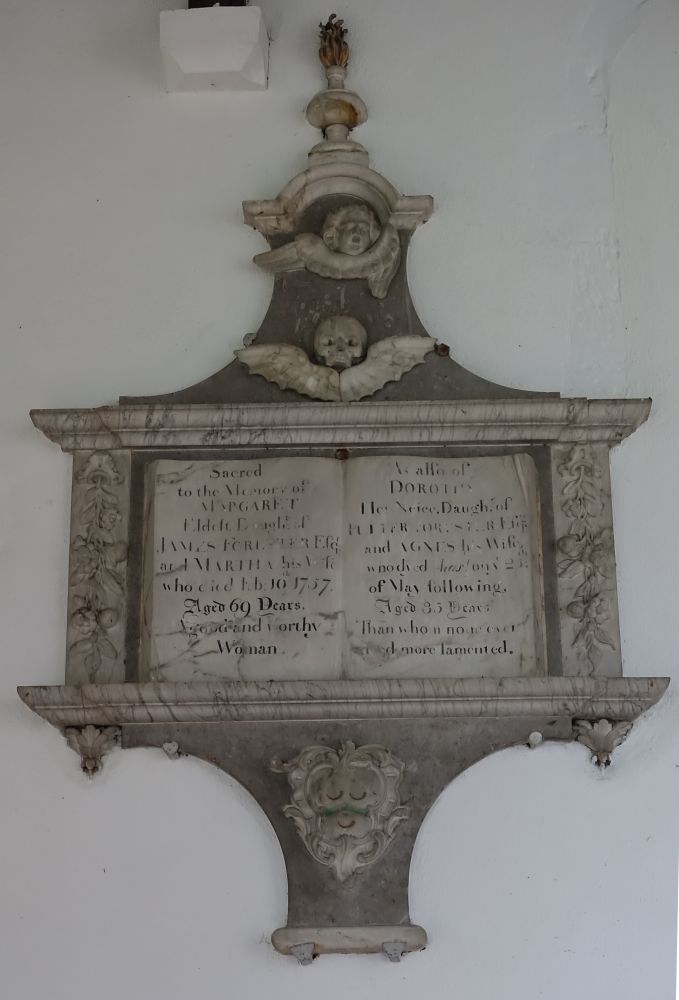 Sacred
to the Memory of
MARGARET
Eldest Daugh.r of
JAMES FORESTER Esq.
and MARTHA his Wife
who died Feb. 10th 1757.
Aged 69 Years.
A good and worthy
Woman.
As also of
DOROTHY
Her Neice, Daugh.r of
FORESTER Esq.
and AGNES his Wife,
who dyed on y.e
of May following,
Aged 35 Years
Than whom none ever
more lamented.